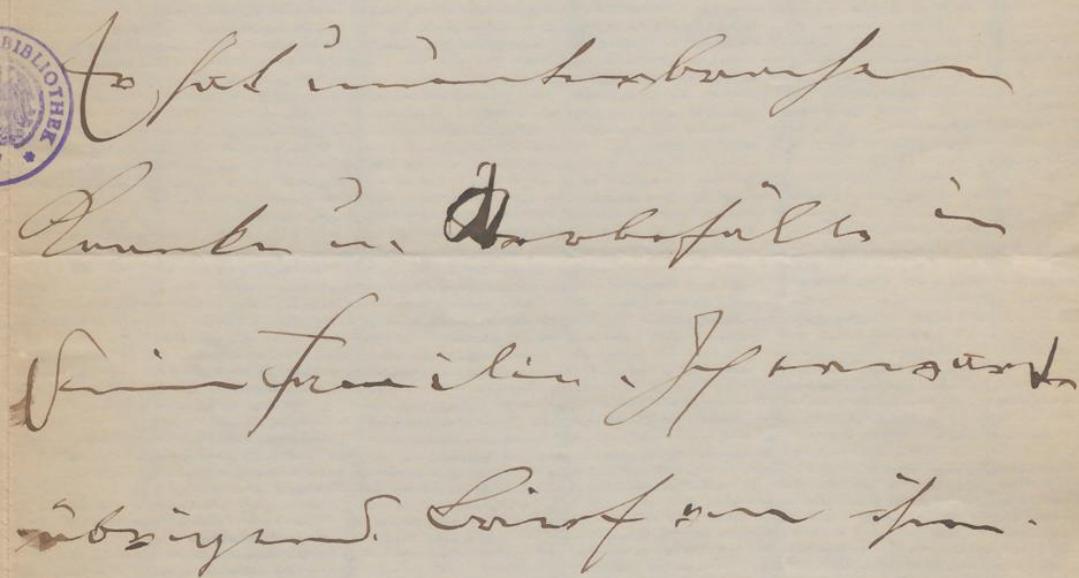 BIBLIOTHEK
Er hat ununterbrochen
Kranke u. Sterbefälle in
seiner Familie. Ich
übrigens Brief von ihm.